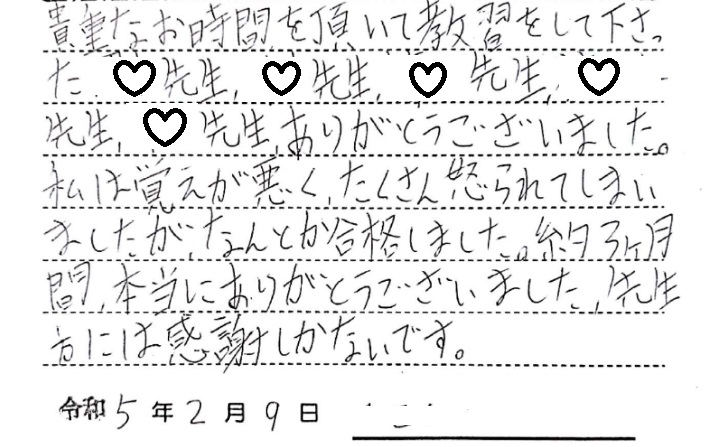 貴重なお時間を頂いて教習をして下さっ
た ♡先生、♡先生、♡先生、♡
先生、♡先生、ありがとうございました。
私は覚えが悪く、たくさん怒られてしまい
ましたが、なんとか合格しました。約3ヶ月
間、本当にありがとうございました、先生
方には感謝しかないです。
令和5年2月9日